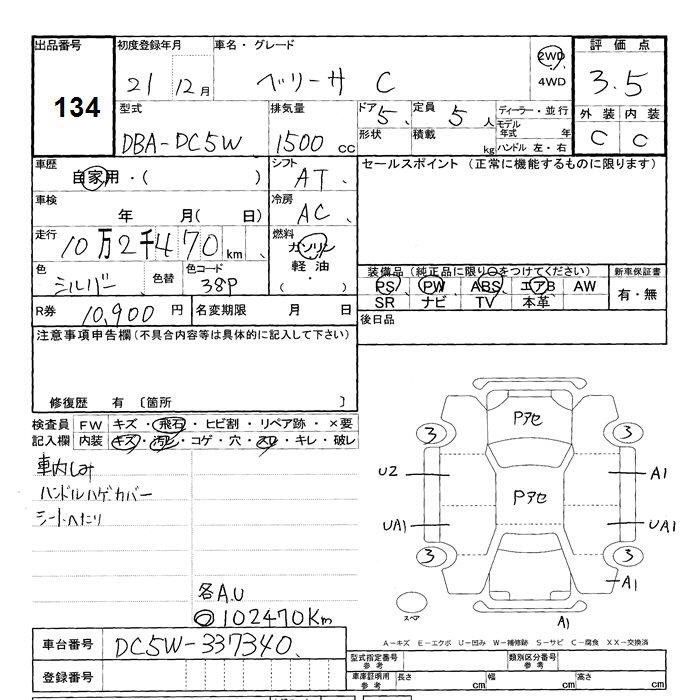 出品番号 初度登録年月 車名・グレード 評価点
134 21 12月 ベリーサ C 2WD 3.5
4WD
型式 排気量 ドア 定員 ディーラー・並行 外装 内装
DBA-DC5W 1500 cc 5 5人 モデル年式 年 C C
形状 積載 kg ハンドル 左・右
車歴 自家用・( ) シフト AT セールスポイント (正常に機能するものに限ります)
車検 年 月( 日) 冷房 AC
走行 10万2千470km 燃料 ガソリン
軽油
・
( )
色 シルバー 色替 色コード 38P
装備品 (純正品に限り○をつけてください) 新車保証書
PS PW ABS エアB AW 有・無
SR ナビ TV 本革
R券 10,900円 名変期限 月 日 後日品
注意事項申告欄(不具合内容等は具体的に記入して下さい)
修復歴 有 〔箇所 〕
検査員 FW キズ・飛石・ヒビ割・リペア跡・×要
記入欄 内装 キズ・汚レ・コゲ・穴・スレ・キレ・破レ
車内しみ
ハンドルハゲカバー
シートへたり
各A.U
102470Km
Pアセ
3 3
U2 Pアセ A1
UA1 UA1
3 3
A1
スペア A1
A-キズ E-エクボ U-凹み W-補修跡 S-サビ C-腐食 XX-交換済
車台番号 DC5W-337340
登録番号
型式指定番号 参考 類別区分番号 参考
車庫証明用 参考 長さ cm 幅 cm 高さ cm